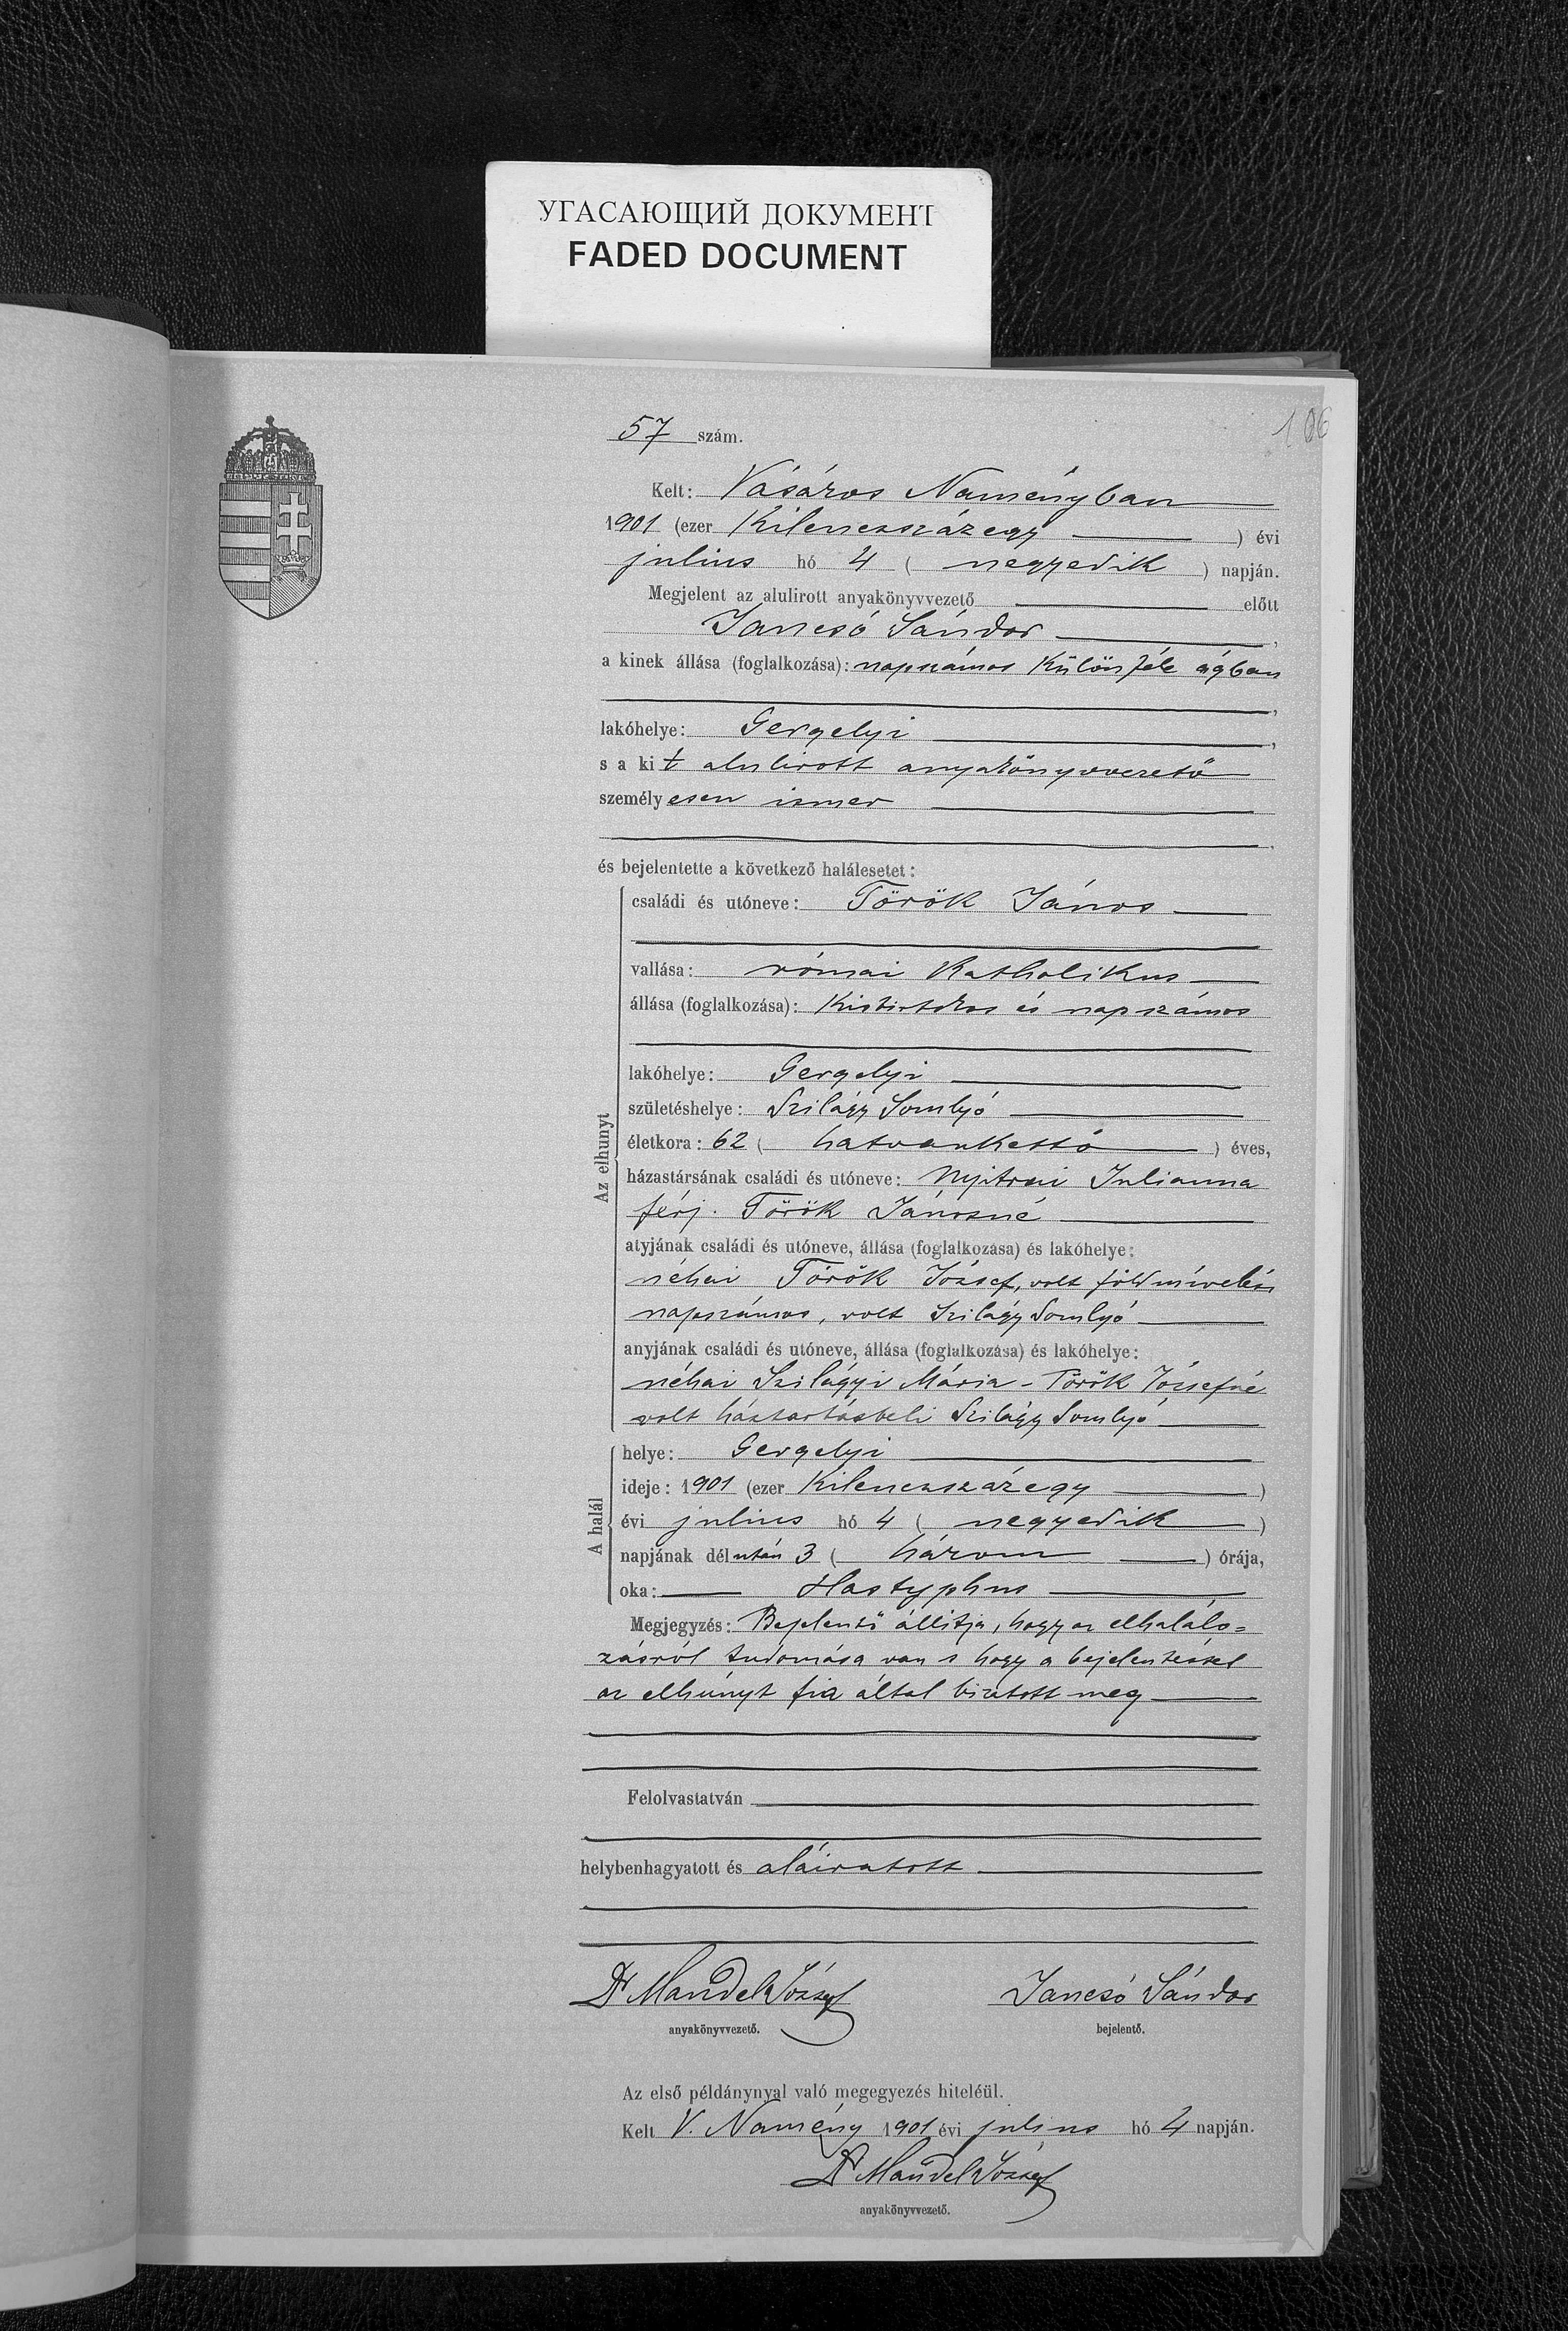 УГАСАЮЩИЙ ДОКУМЕНТ
FADED DOCUMENT
106
57 szám.
Kelt: Vásáros Naményban
1901 (ezer Kilenczszázegy ) évi
julius hó 4 ( negyedik ) napján.
Megjelent az alulirott anyakönyvvezető előtt
Jancsó Sándor,
a kinek állása (foglalkozása): napszámos Különféle ágban
,
lakóhelye: Gergelyi,
s a kit alulirott anyakönyvvezető
személyesen ismer
.
és bejelentette a következő halálesetet:
Az elhunyt
családi és utóneve: Török János
vallása: római Katholikus
állása (foglalkozása): Kisbirtokos és napszámos
lakóhelye: Gergelyi
születéshelye: Szilágy Somlyó
életkora: 62 ( hatvankettő ) éves,
házastársának családi és utóneve: Nyitrai Julianna
férj. Török Jánosné
atyjának családi és utóneve, állása (foglalkozása) és lakóhelye:
néhai Török József, volt földmivelési
napszámos, volt Szilágy Somlyó
anyjának családi és utóneve, állása (foglalkozása) és lakóhelye:
néhai Szilágyi Mária - Török Józsefné
volt háztartásbeli Szilágy Somlyó
A halál
helye: Gergelyi
ideje: 1901 (ezer Kilenczszázegy )
évi julius hó 4 ( negyedik )
napjának délután 3 ( három ) órája,
oka: Hastyphus
Megjegyzés: Bejelentő állitja, hogy az elhalálo=
zásról tudomása van s hogy a bejelentéssel
az elhúnyt fia által bizatott meg
Felolvastatván
helybenhagyatott és aláiratott
Dr Mandel József Jancsó Sándor
anyakönyvvezető. bejelentő.
Az első példánynyal való megegyezés hiteléül.
Kelt V. Namény 1901 évi julius hó 4 napján.
Dr Mandel József
anyakönyvvezető.